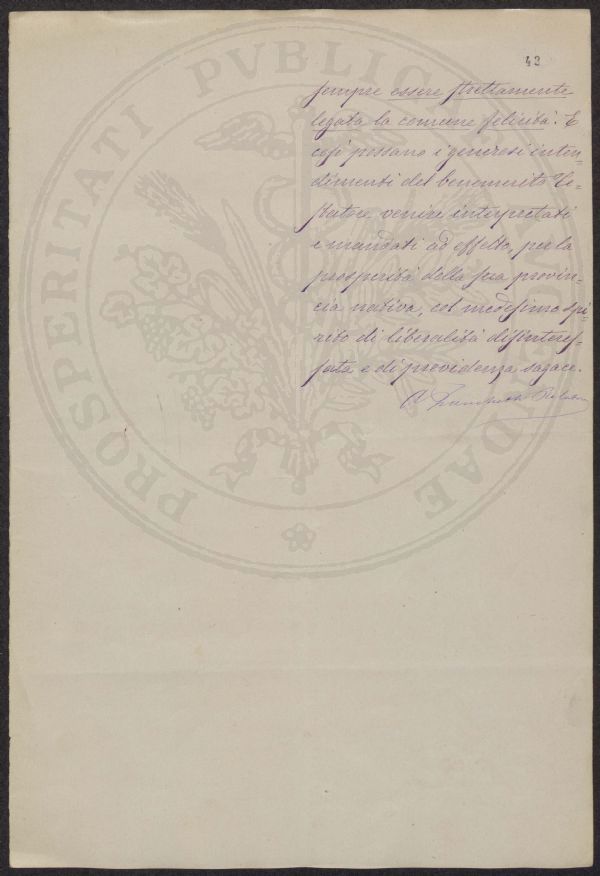 43
sempre essere strettamente
legata la comune felicità. E
così possano i generosi inten-
dimenti del benemerito Te-
statore venire interpretati
e mandati ad effetto, per la
prosperità della sua provin-
cia nativa, col medesimo spi-
rito di liberalità disinteres-
sata e di previdenza sagace.
PROSPERITATI PVBLICAE AVGENDAE